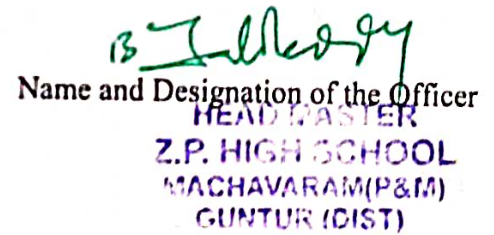 B
Name and Designation of the Officer
HEAD MASTER
Z.P. HIGH SCHOOL
MACHAVARAM(P&M)
GUNTUR (DIST)